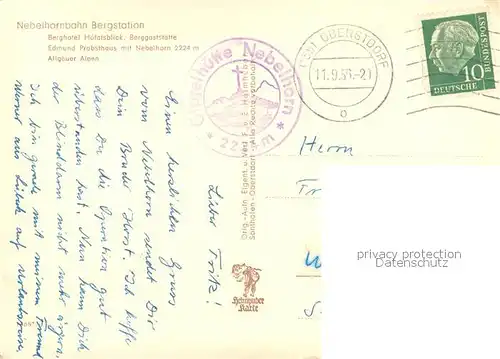 Nebelhornbahn Bergstation
Berghotel Höfatsblick, Berggaststätte
Edmund Probsthaus mit Nebelhorn 2224 m
Allgäuer Alpen
Gipfelhütte Nebelhorn
* 2224 m *
(13b) OBERSTDORF
11.9.57.-21
o
DEUTSCHE
BUNDESPOST
10
Lieber Fritz!
Einen herzlichen Gruss
vom Nebelhorn sendet Dir
Dein Bruder Horst. Ich hoffe
dass Du die Operation gut
überstanden hast. Nun kann Dich
der Blinddarm nicht mehr ärgern.
Ich bin gerade mit meinem Freund
Werner aus Lübeck auf Urlaubsreise.
Orig.-Aufn. Eigent. u. Verl. F. u. E. Heimhuber
Sonthofen-Oberstdorf
Heimhuber
Karte
Herrn
privacy protection
Datenschutz